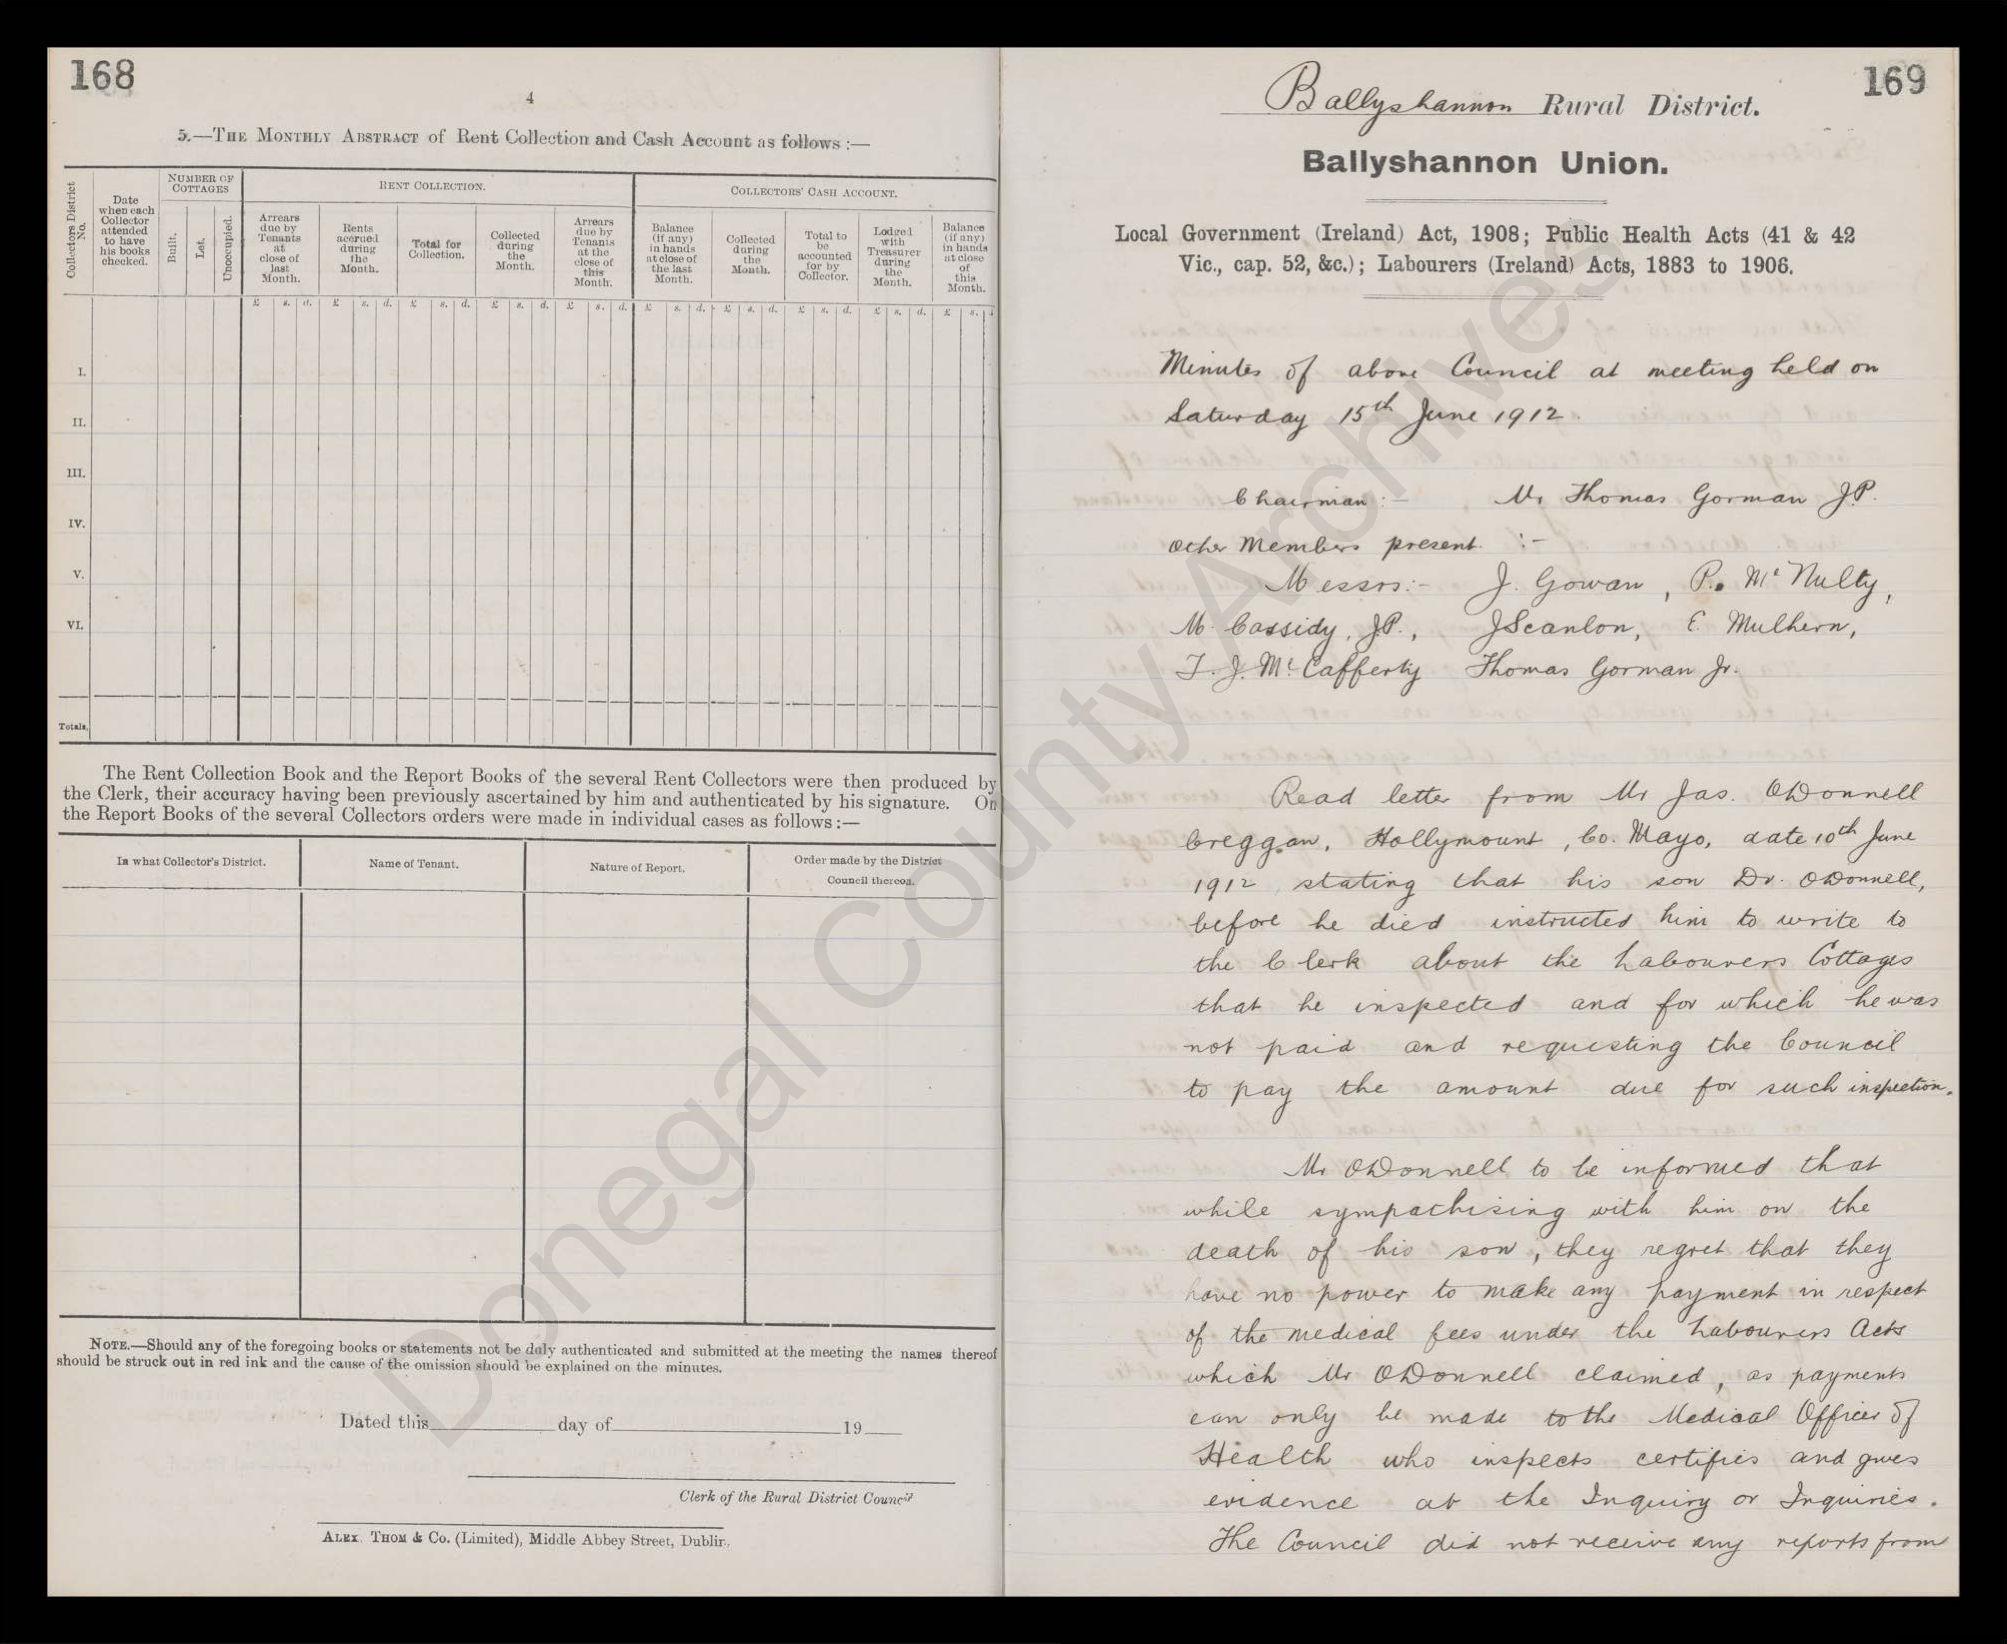 168
4
5.—THE MONTHLY ABSTRACT of Rent Collection and Cash Account as follows :—
Collectors District No.
Date when each Collector attended to have his books checked.
NUMBER OF COTTAGES
Built.
Let.
Unoccupied.
RENT COLLECTION.
Arrears due by Tenants at close of last Month.
Rents accrued during the Month.
Total for Collection.
Collected during the Month.
Arrears due by Tenants at the close of this Month.
COLLECTORS' CASH ACCOUNT.
Balance (if any) in hands at close of the last Month.
Collected during the Month.
Total to be accounted for by Collector.
Lodged with Treasurer during the Month.
Balance (if any) in hands at close of this Month.
£ s. d. £ s. d. £ s. d. £ s. d. £ s. d. £ s. d. £ s. d. £ s. d. £ s. d. £ s.
I.
II.
III.
IV.
V.
VI.
Totals,
The Rent Collection Book and the Report Books of the several Rent Collectors were then produced by
the Clerk, their accuracy having been previously ascertained by him and authenticated by his signature. On
the Report Books of the several Collectors orders were made in individual cases as follows :—
In what Collector's District.
Name of Tenant.
Nature of Report.
Order made by the District
Council thereon.
NOTE.—Should any of the foregoing books or statements not be duly authenticated and submitted at the meeting the names thereof
should be struck out in red ink and the cause of the omission should be explained on the minutes.
Dated this day of 19
Clerk of the Rural District Council
ALEX. THOM & Co. (Limited), Middle Abbey Street, Dublin.
169
Ballyshannon Rural District.
Ballyshannon Union.
Local Government (Ireland) Act, 1908; Public Health Acts (41 & 42
Vic., cap. 52, &c.); Labourers (Ireland) Acts, 1883 to 1906.
Minutes of above Council at meeting held on
Saturday 15th June 1912.
Chairman :— Mr Thomas Gorman J.P.
Other Members present :-
Messrs:- J. Gowan, P. McNulty,
M. Cassidy, J.P., J Scanlon, E Mulhern,
T. J. McCafferty Thomas Gorman Jr.
Read letter from Mr Jas. ODonnell
Creggan, Hollymount, Co. Mayo, date 10th June
1912 stating that his son Dr. ODonnell,
before he died instructed him to write to
the Clerk about the Labourers Cottages
that he inspected and for which he was
not paid and requesting the Council
to pay the amount due for such inspection.
Mr ODonnell to be informed that
while sympathising with him on the
death of his son, they regret that they
have no power to make any payment in respect
of the medical fees under the Labourers Acts
which Mr ODonnell claimed, as payments
can only be made to the Medical Officer of
Health who inspects certifies and gives
evidence at the Inquiry or Inquiries.
The Council did not receive any reports from
Donegal County Archives